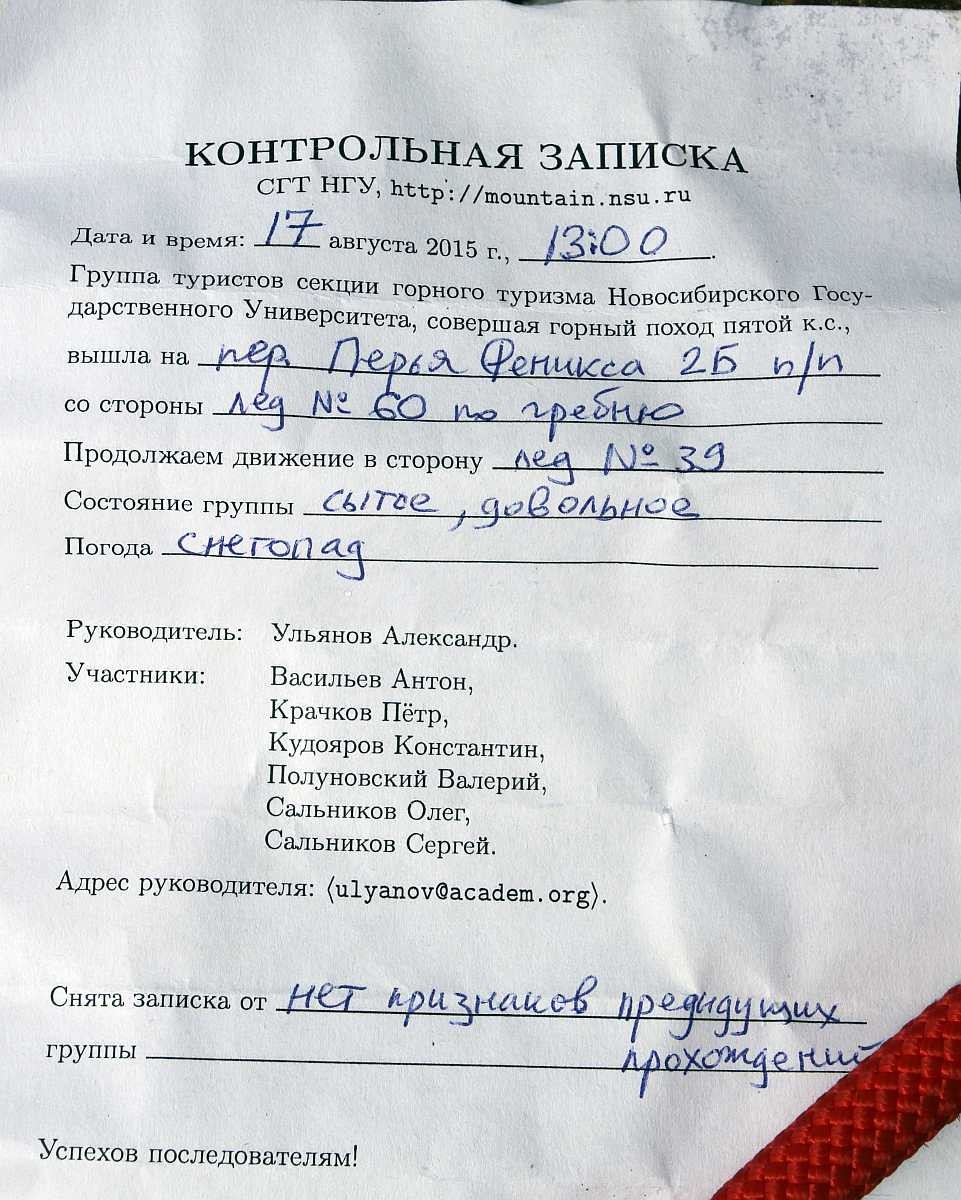 КОНТРОЛЬНАЯ ЗАПИСКА
СГТ НГУ, http://mountain.nsu.ru
Дата и время: 17 августа 2015 г., 13:00.
Группа туристов секции горного туризма Новосибирского Госу-
дарственного Университета, совершая горный поход пятой к.с.,
вышла на пер. Перья Феникса 2Б п/п
со стороны лед № 60 по гребню
Продолжаем движение в сторону лед № 39
Состояние группы сытое, довольное
Погода снегопад
Руководитель: Ульянов Александр.
Участники: Васильев Антон,
Крачков Пётр,
Кудояров Константин,
Полуновский Валерий,
Сальников Олег,
Сальников Сергей.
Адрес руководителя: ⟨ulyanov@academ.org⟩.
Снята записка от нет признаков предидущих
группы прохождений
Успехов последователям!